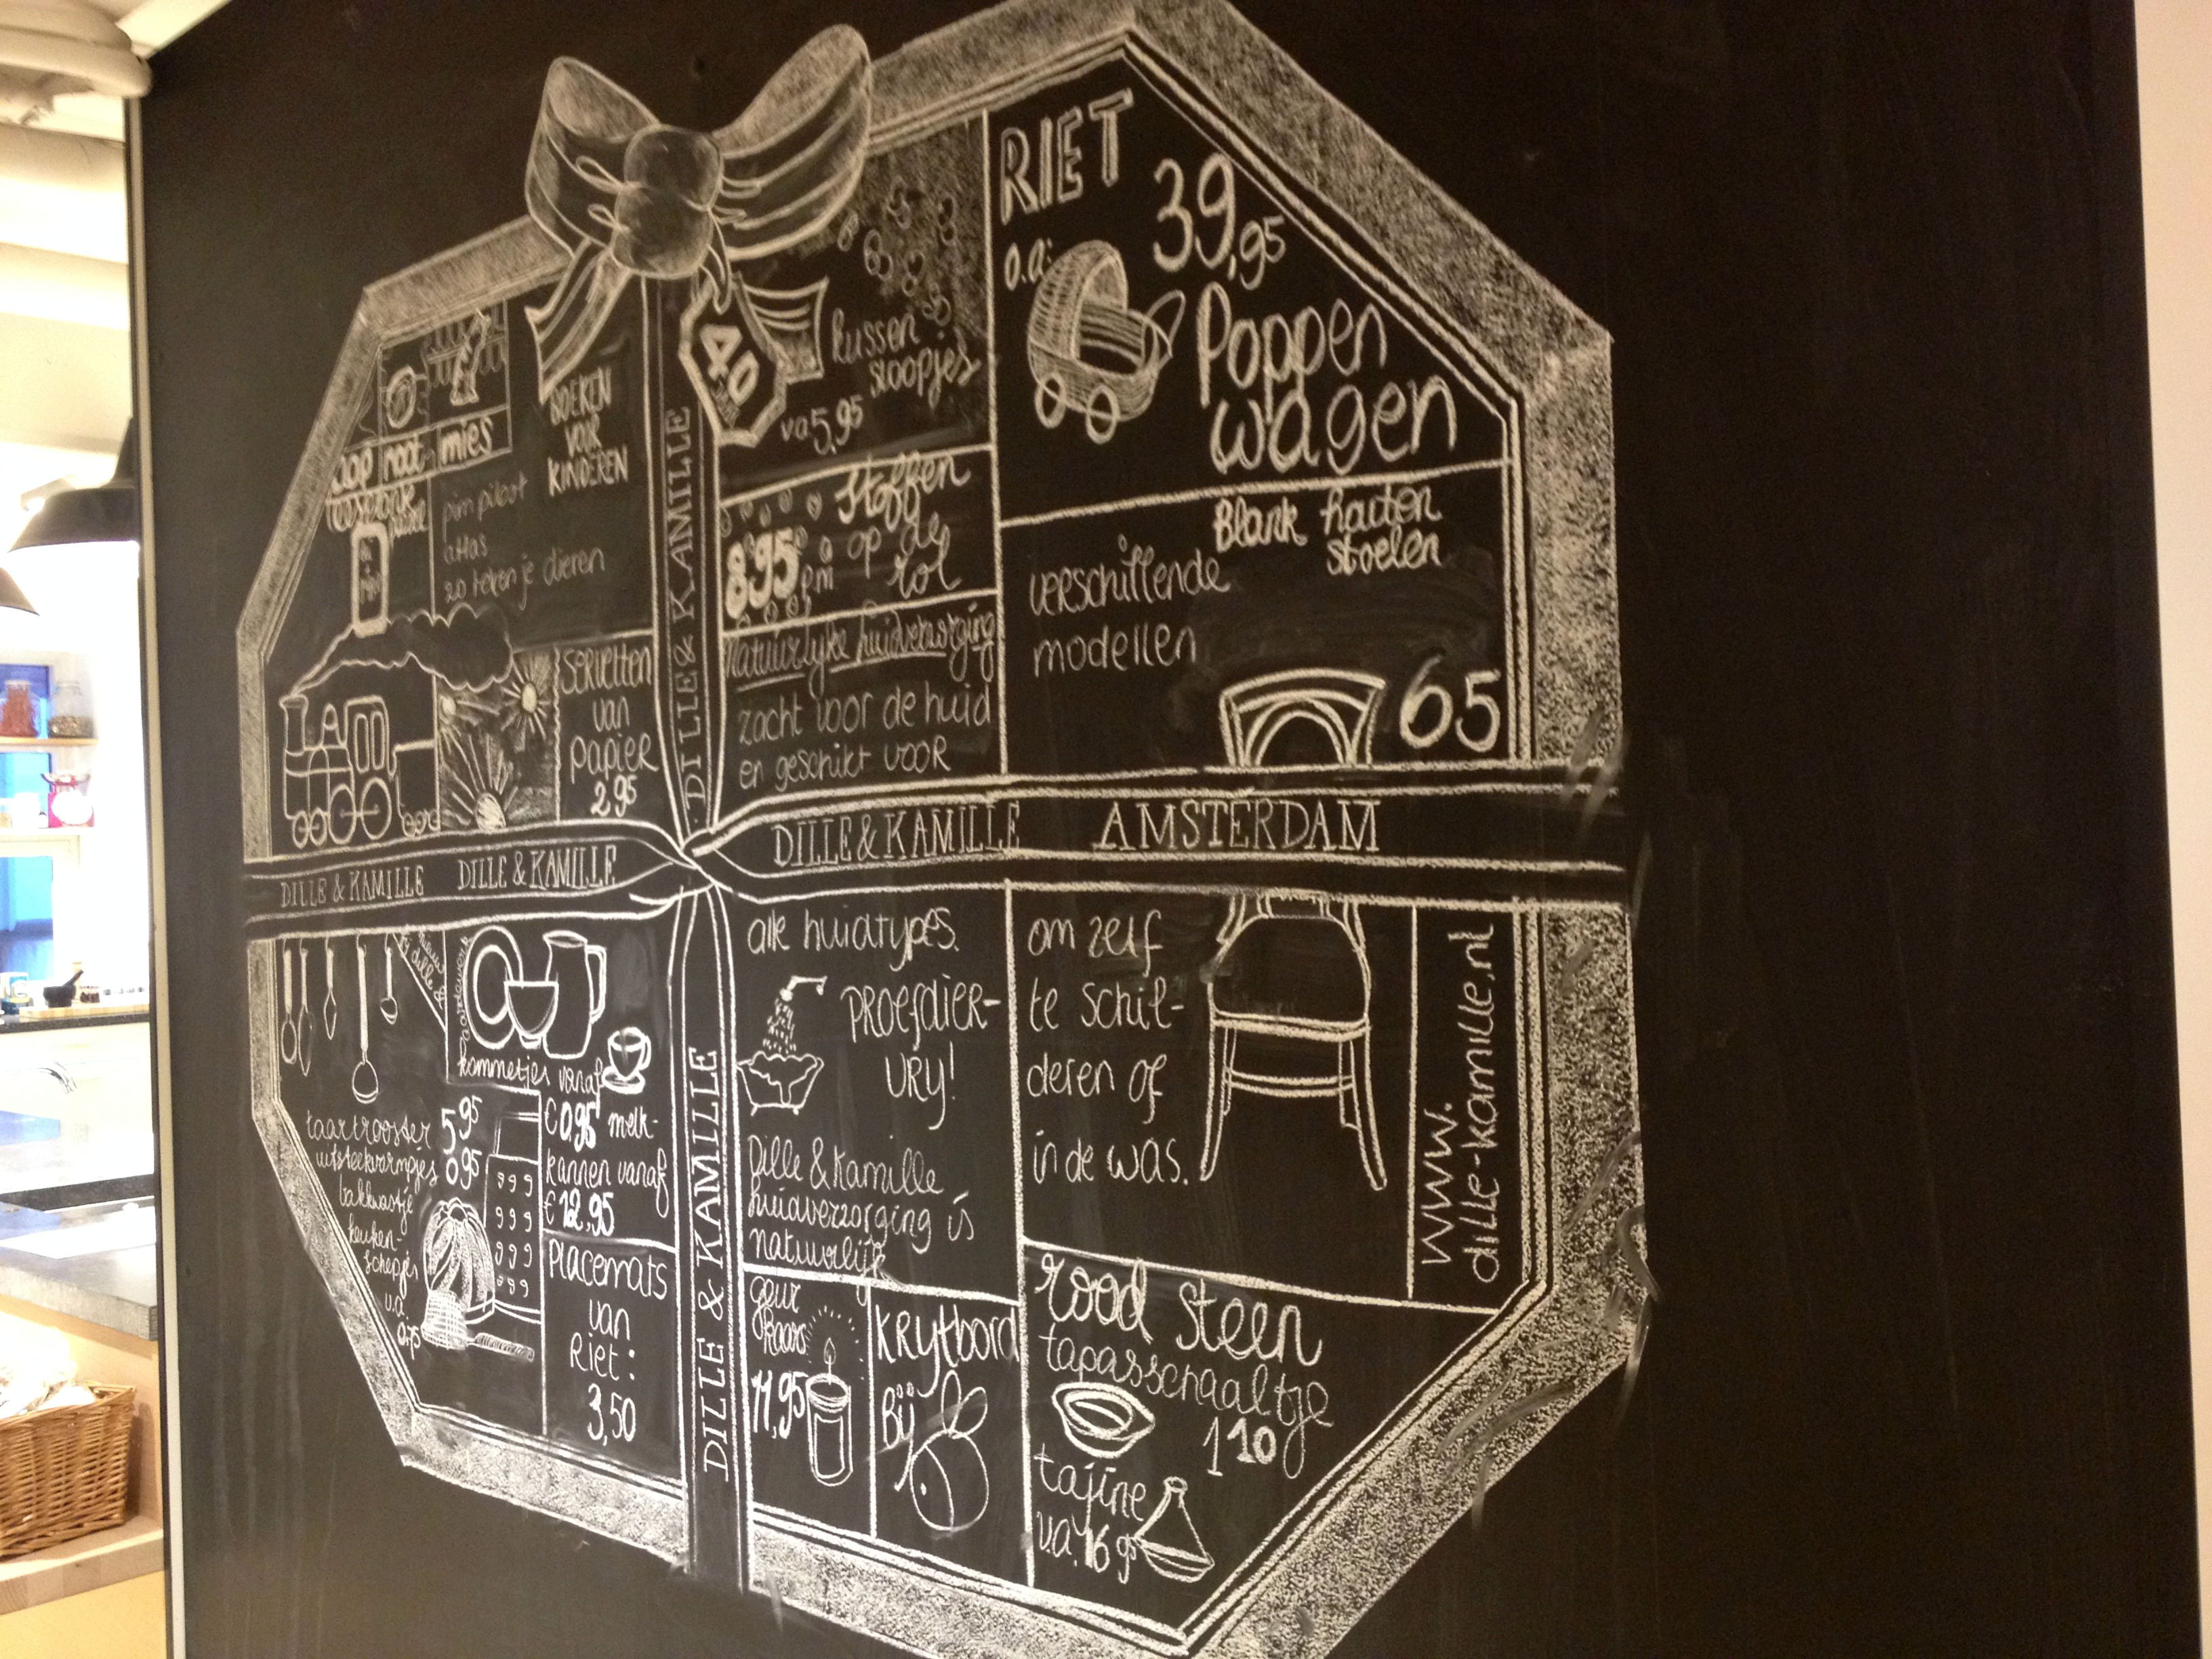 RIET
o.a:
39,95
Poppen
wagen
kussen
sloopjes
va 5,95
40
BOEKEN
VOOR
KINDEREN
aap noot mies
pim piloot
atlas
20 teken je dieren
Stoffen
op de
rol
8,95
p m
Blank houten
stoelen
verschillende
modellen
65
Natuurlijke huidverzorging
zacht voor de huid
en geschikt voor
Servietten
van
papier
2,95
DILLE & KAMILLE
DILLE & KAMILLE DILLE & KAMILLE DILLE & KAMILLE AMSTERDAM
alle huidtypes.
PROEFDIER-
VRY!
Dille & Kamille
huidverzorging is
natuurlijk
om zelf
te schil-
deren of
in de was.
www.
dille-kamille.nl
kommetjes vanaf
€ 0,95 melk-
kannen vanaf
€ 12,95
taartrooster 5,95
uitsteekvormpjes 0,95
bakkwastje
keuken-
schepjes
v.a.
0,75
Placemats
van
Riet:
3,50
DILLE & KAMILLE DILLE & KAMILLE
geur
kaars
11,95
Krytbord
Bij
rood steen
tapasschaaltje
1 10
tajine
v.a. 16 95